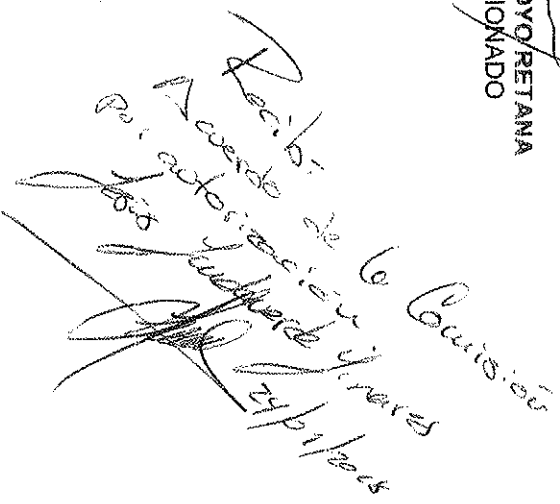 OYO RETANA
IONADO
Recibí
Acuerdo de la Comisión
Por autorización
Valverde Linares
24/01/2018